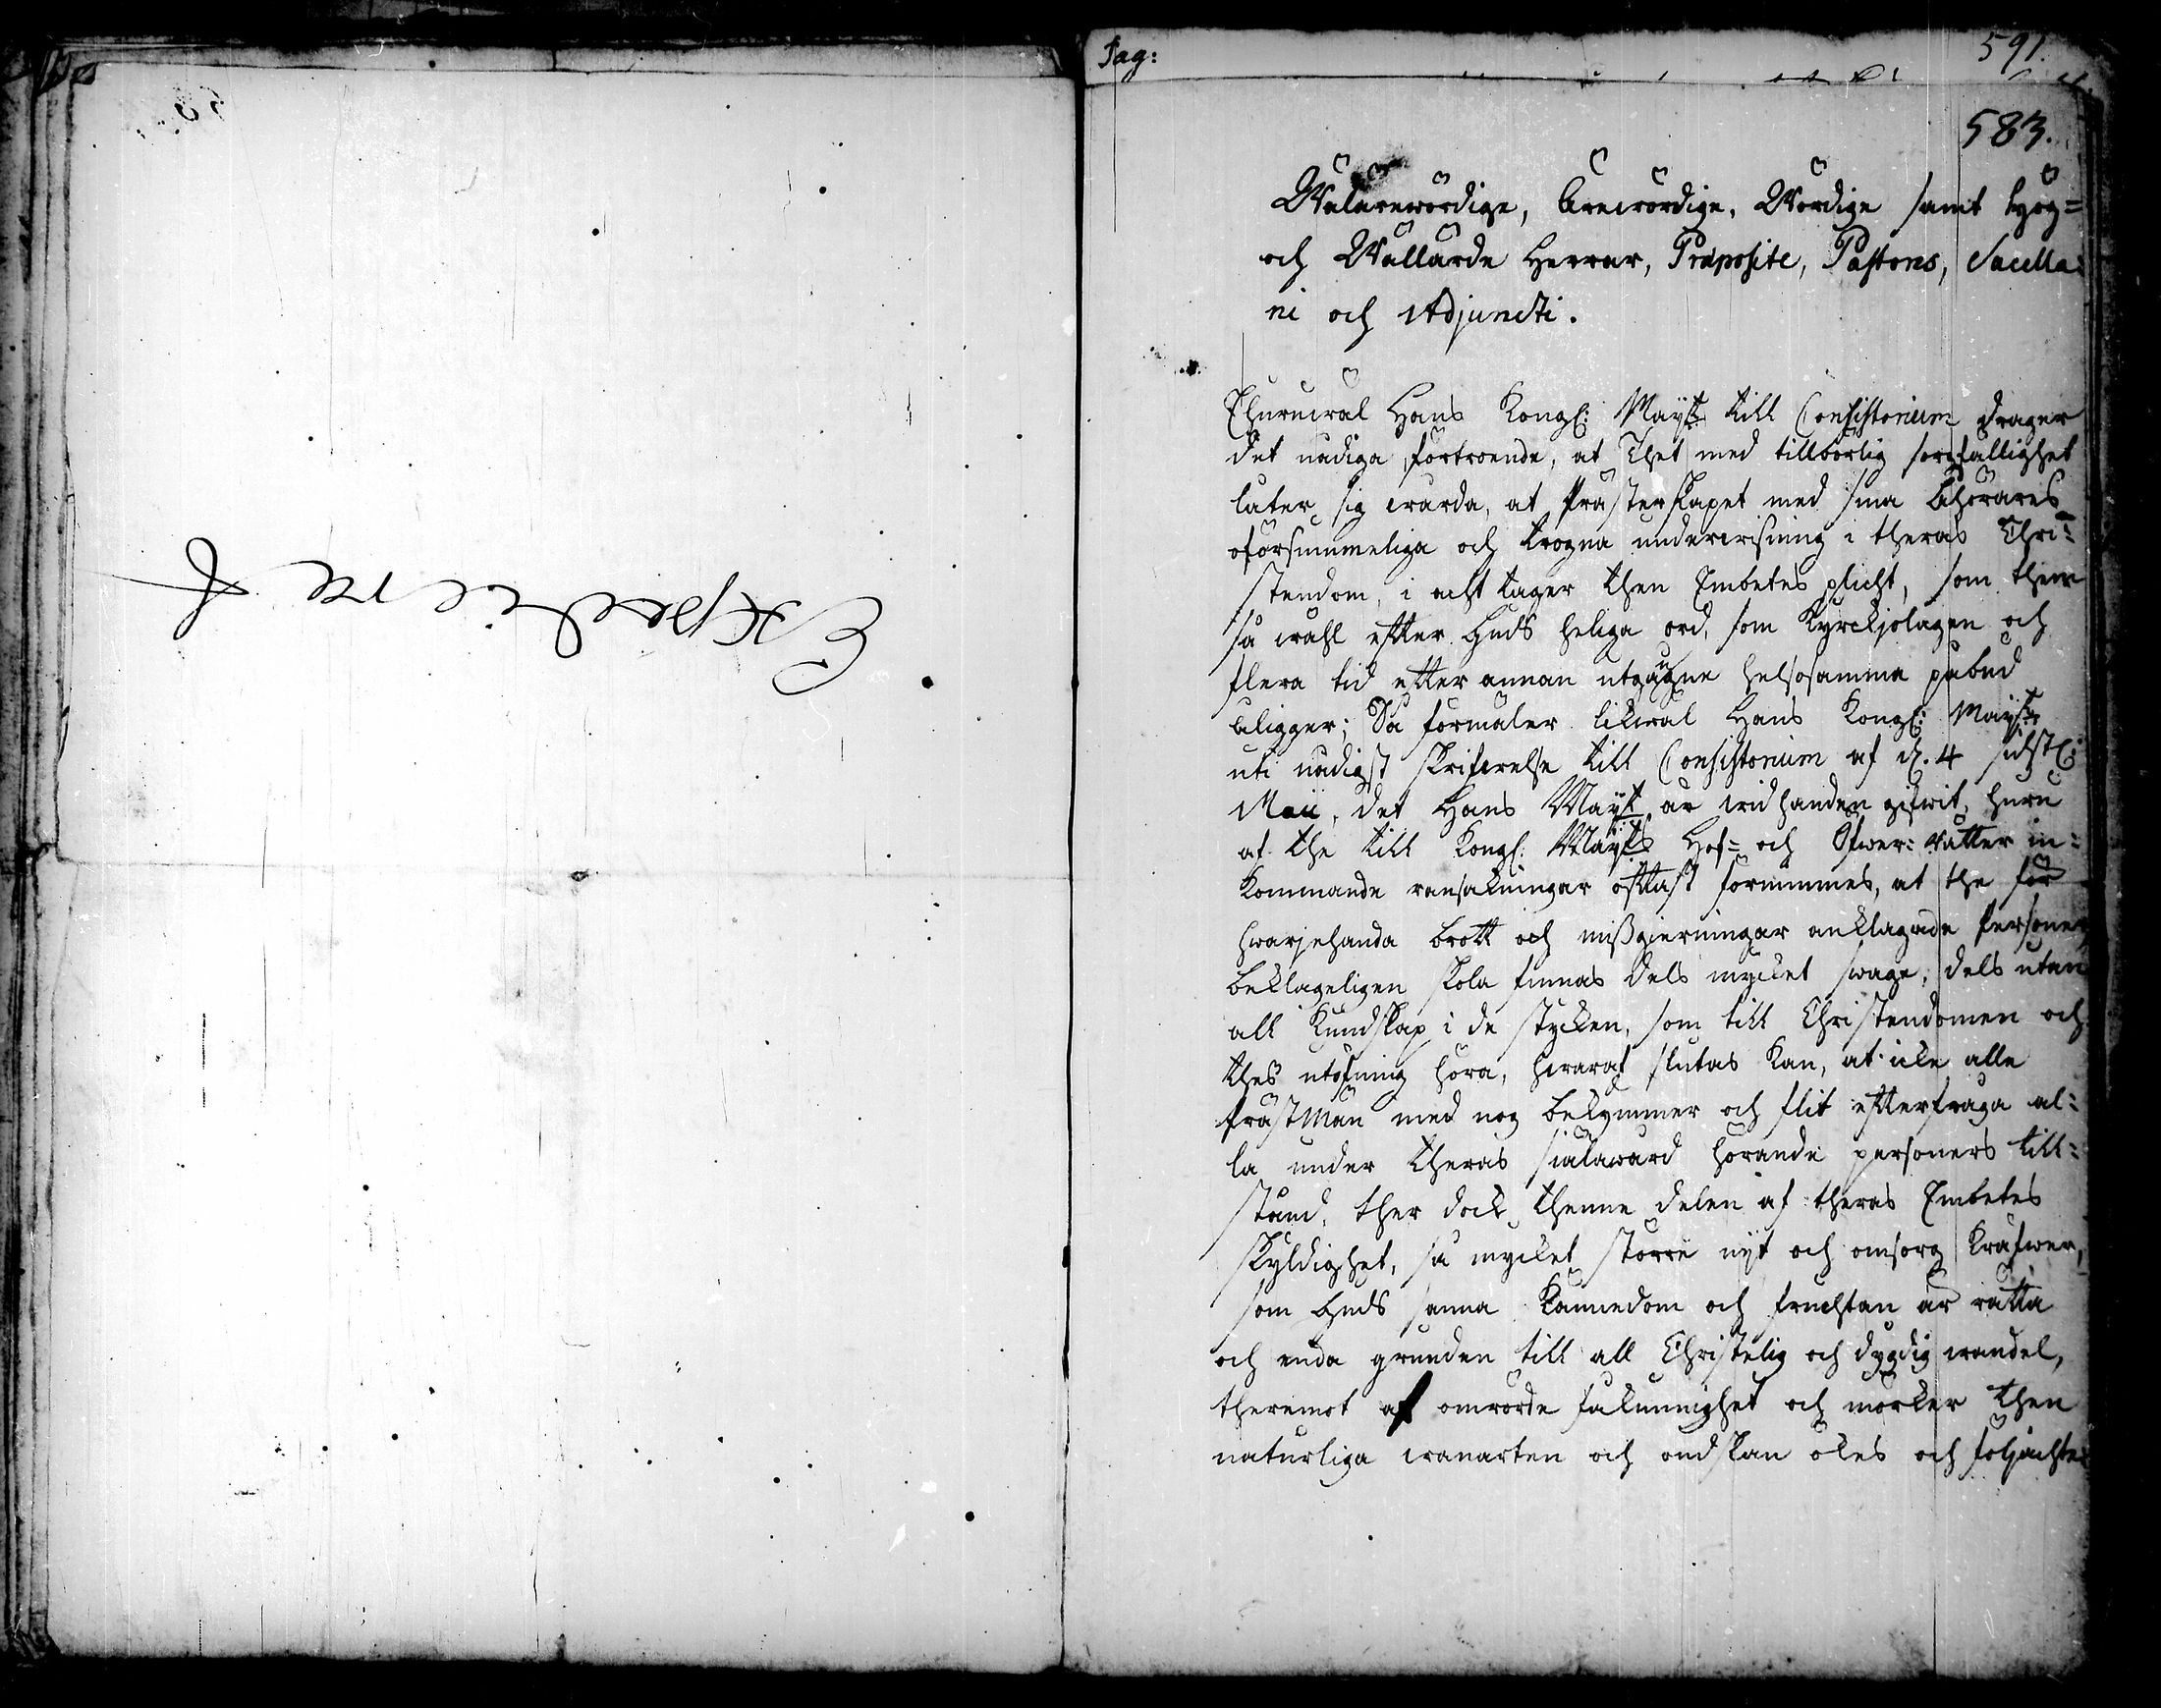 Expediere
Pag:
591.
583.
Wälärewördige, Ärewördige, Wördige samt Hög=
och Wällärde Herrar, Præposite, Pastores, Sacella=
ni och Adjuncti.
Ehuruwäl Hans Kongl: Maÿtt till Consistorium drager
det nådiga förtroende, at Thet med tillbörlig sorgfällighet
låter sig wårda, at Prästerskapet med sina Åhörares
oförsummeliga och trogna underwisning i theras Chri=
stendom, i acht tager then Embetes plicht, som them
så wähl efter Guds heliga ord, som Kyrckjolagen och
flera tid efter annan utgågne helsosamma påbud
åligger; Så förmäler likwäl Hans Kongl: Maÿtt
uti nådigst skrifwelse till Consistorium af d. 4 sidstl:
Maii, det Hans Maÿt är widhanden gifwit, huru
af the till Kongl. Maÿts Hof= och Öfwer: Rätter in=
kommande ransakningar oftast förnimmes, at the för
hwarjehanda brott och missgierningar anklagade Personer
beklageligen skola finnas dels mycket swage, dels utan
all Kundskap i de stycken, som till Christendomen och
thes utöfning höra, hwaraf slutas kan, at icke alle
PrästMän med nog bekymmer och flit efterfråga al=
la under theras siälaward hörande personers till=
stånd, ther dock thenne delen af theras Embetes
skyldighet, så mycket större nijt och omsorg kräfwer,
som Guds sanna Kännedom och fruchtan är rätta
och enda grunden till all Christelig och dygdig wandel,
theremot af omrörde fåkunnighet och mörker then
naturliga wanarten och ondskan ökes och följachte